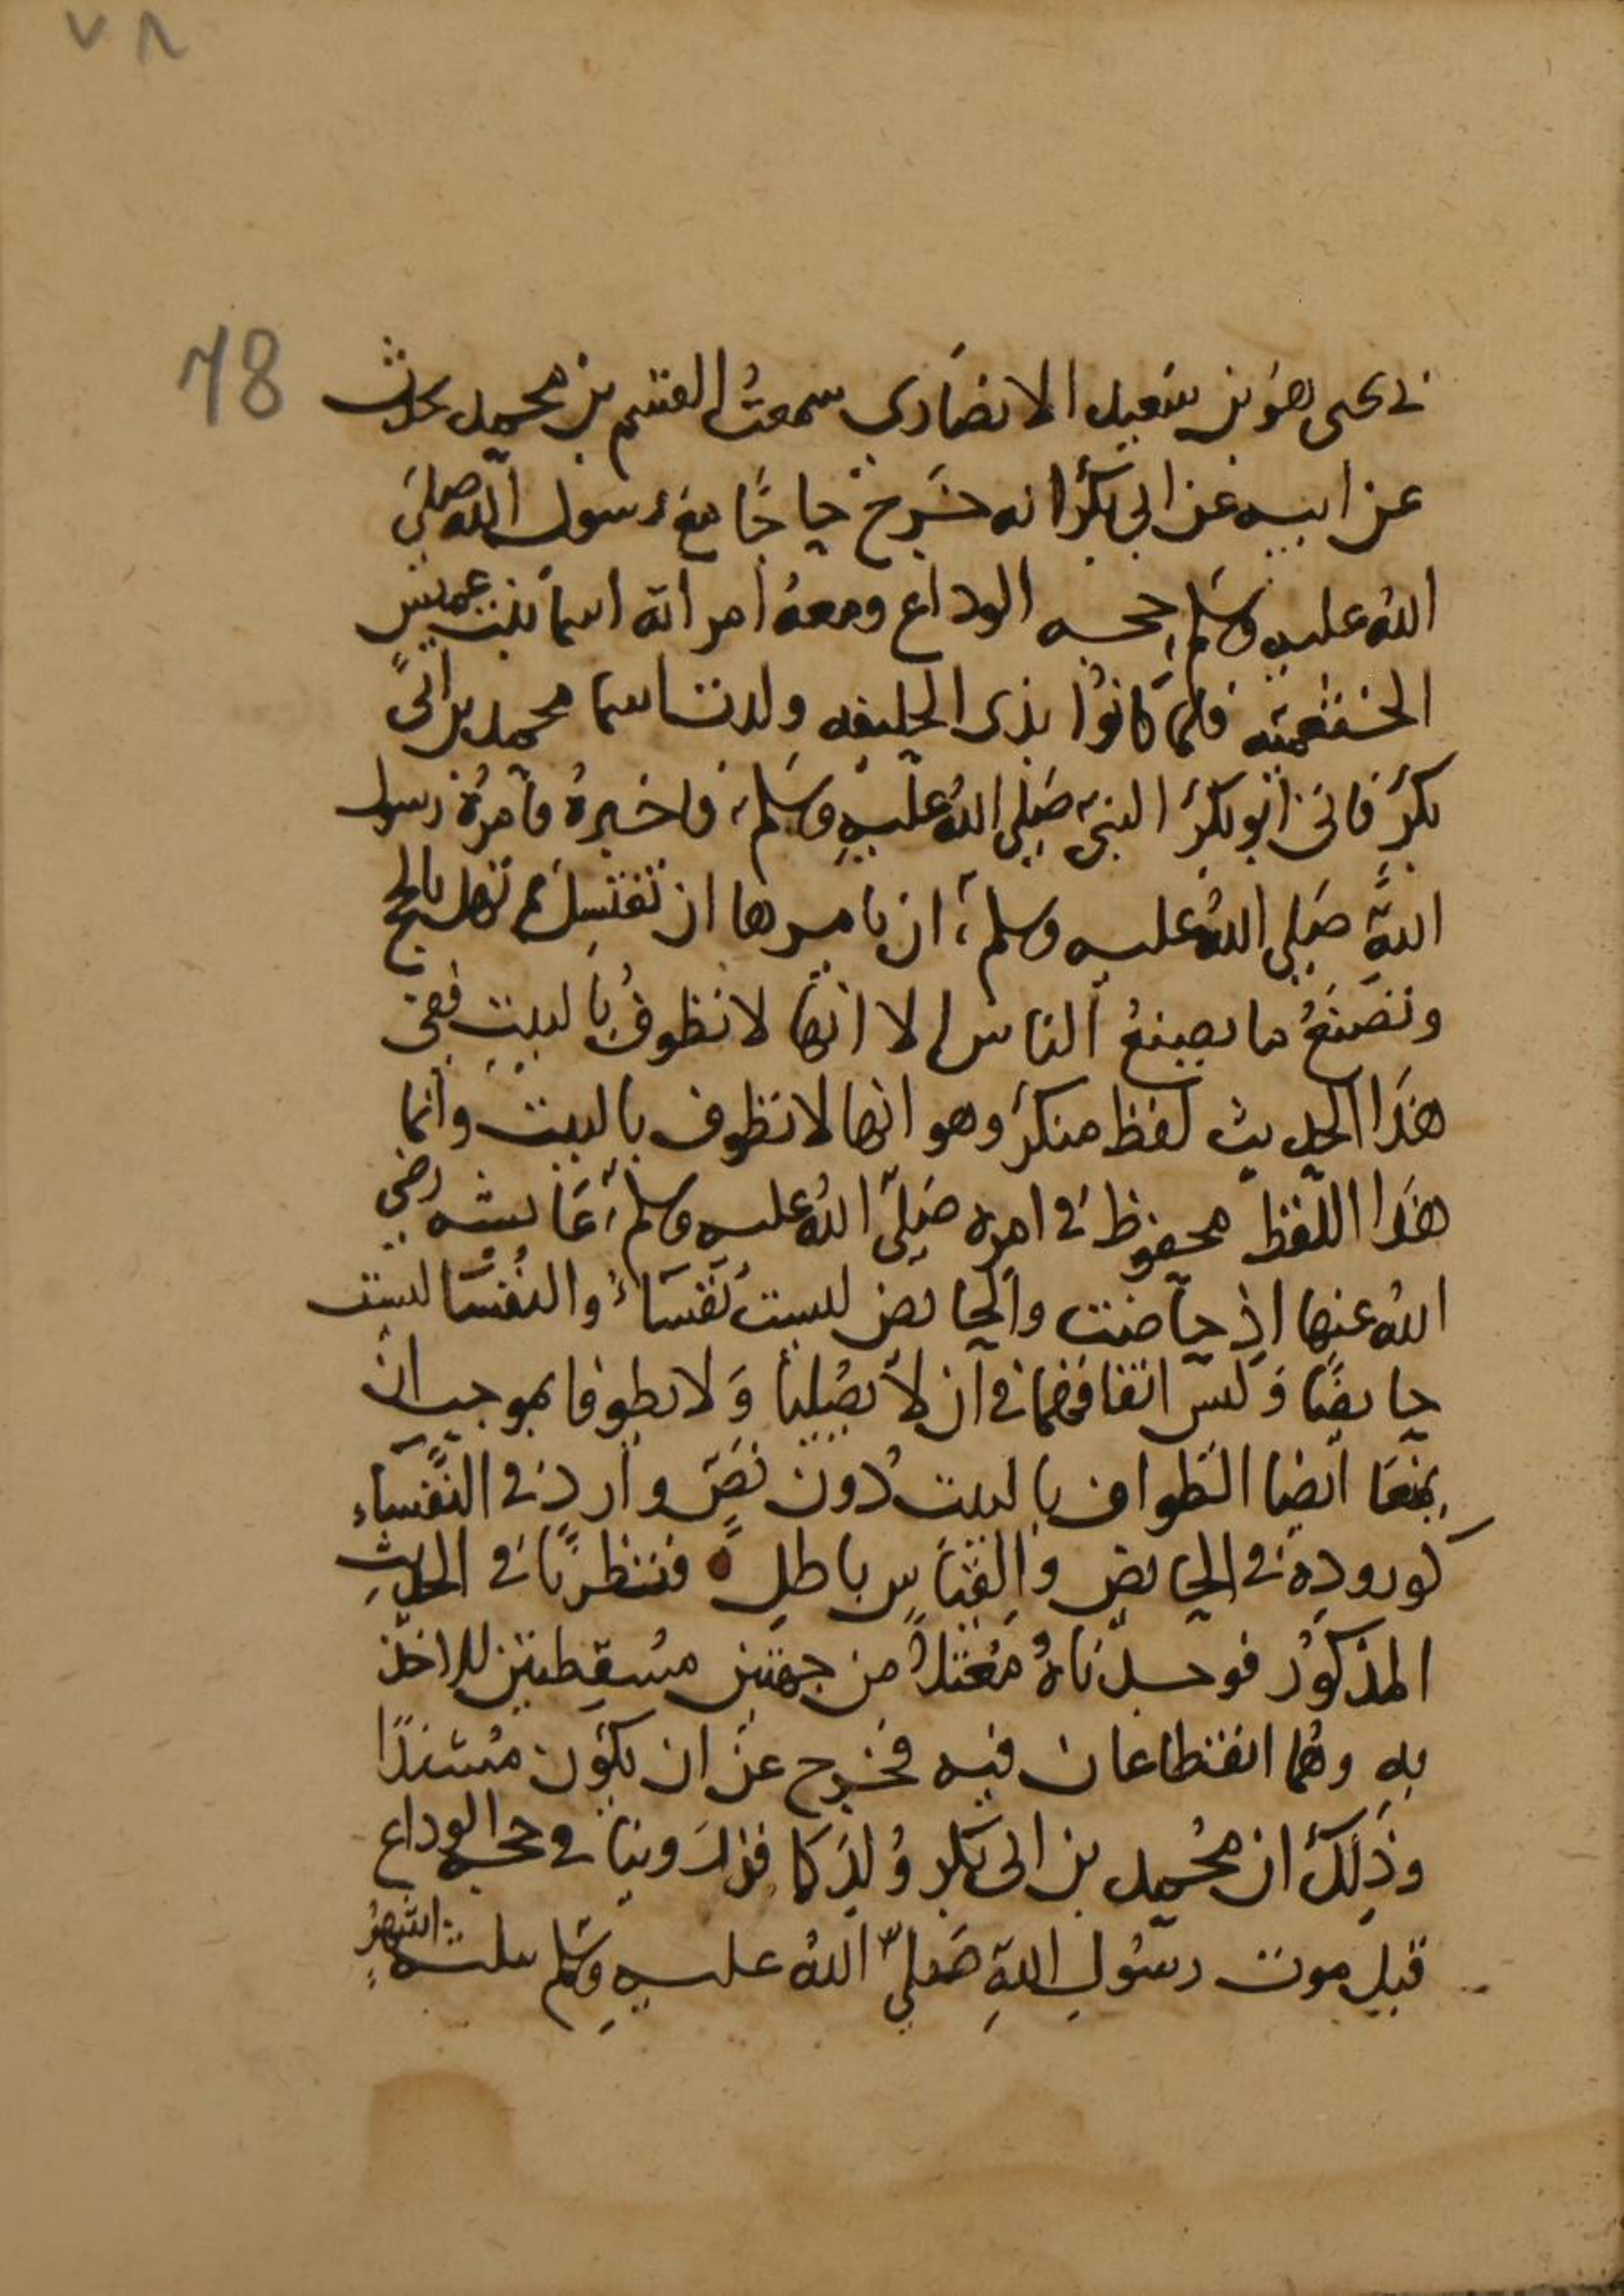 ٧٨
78
ني يحيى هو بن سعيد الانصاري سمعت القسم بن محمد يحدث
عن ابيه عن ابي بكر انه خرج حاجًا مع رسول الله صلى
الله عليه وسلم حجه الوداع ومعه امراته اسما بنت عميس
الخثعميه فلما كانوا بذي الحليفه ولدت اسما محمد بن ابي
بكر فاتى ابو بكر النبي صلى الله عليه وسلم فاخبره فامره رسول
الله صلى الله عليه وسلم ان يامرها ان تغتسل ثم تهل بالحج
وتصنع ما يصنع الناس الا انها لا تطوف بالبيت ففي
هذا الحديث لفظ منكر وهو انها لا تطوف بالبيت وانما
هذا اللفظ محفوظ في امره صلى الله عليه وسلم عايشه رضي
الله عنها اذ حاضت والحايض ليست نفساء والنفسا ليست
حايضا وليس اتفاقهما في ان لا يصليا ولا يطوفا بموجب ان
يمنعا ايضا الطواف بالبيت دون نص وارد في النفساء
كوروده في الحايض والقياس باطل فنظرنا في الحديث
المذكور فوجدناه معتلا من جهتين مسقطتين للاخذ
به وهما انقطاعان فيه فخرج عن ان يكون مسندا
وذلك ان محمد بن ابي بكر ولد كما في حجه الوداع
قبل موت رسول الله صلى الله عليه وسلم بثلثه اشهر